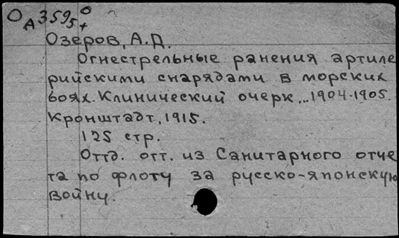 О А 359 5 0 +
Озеров, А.Д.
Огнестрельные ранения артиле
рийскими снарядами в морских
боях. Клинический очерк,...1904-1905.
Кронштадт, 1915.
125 стр.
Отд. отт. из Санитарного отче
та по флоту за русско-японскую
войну.